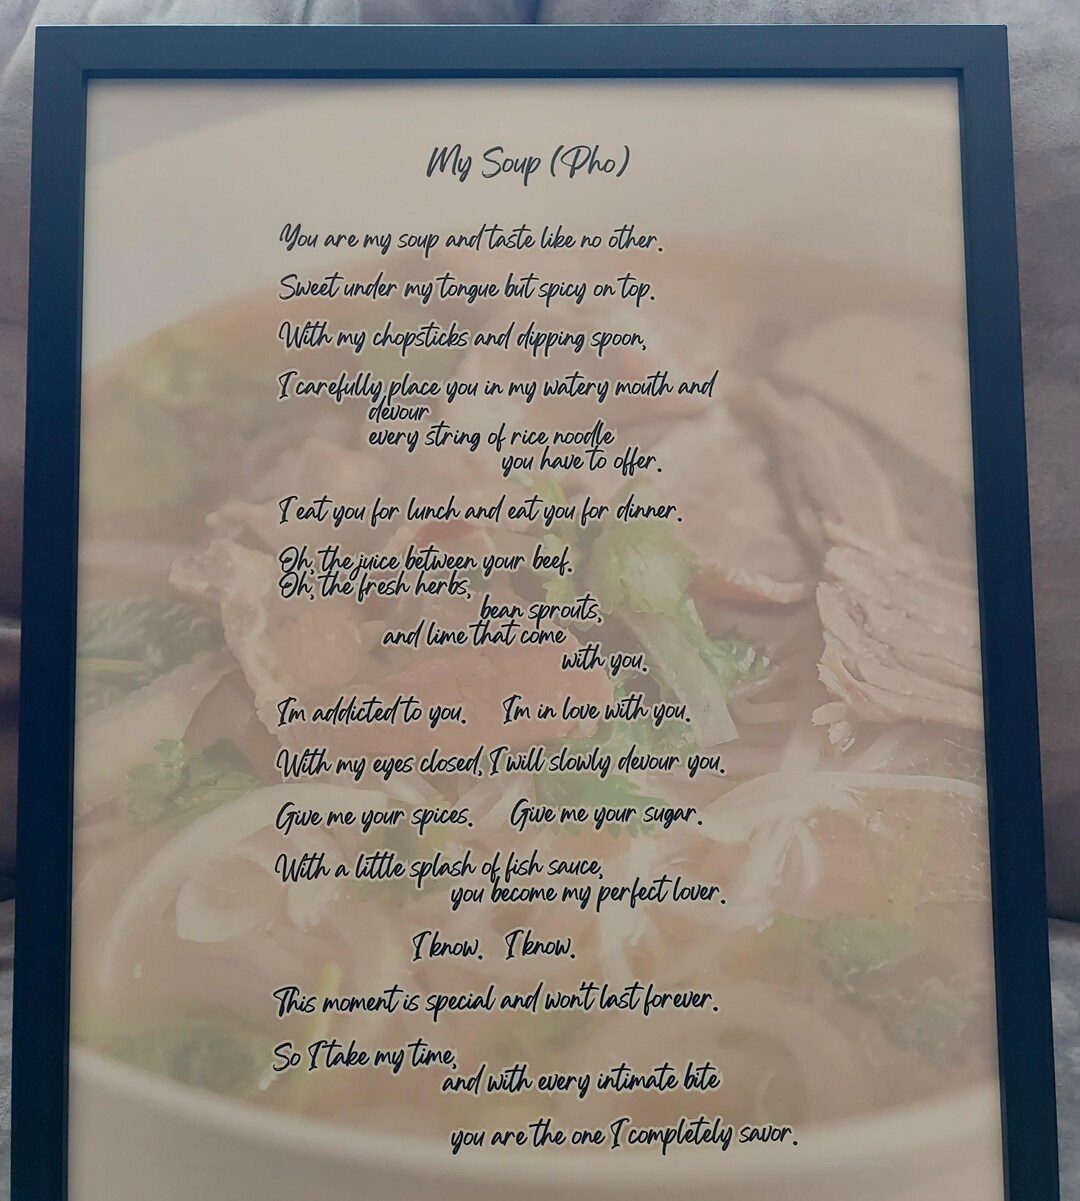 My Soup (Pho)
You are my soup and taste like no other.
Sweet under my tongue but spicy on top.
With my chopsticks and dipping spoon,
I carefully place you in my watery mouth and
devour
every string of rice noodle
you have to offer.
I eat you for lunch and eat you for dinner.
Oh, the juice between your beef.
Oh, the fresh herbs,
bean sprouts,
and lime that come
with you.
I'm addicted to you. I'm in love with you.
With my eyes closed, I will slowly devour you.
Give me your spices. Give me your sugar.
With a little splash of fish sauce,
you become my perfect lover.
I know. I know.
This moment is special and won't last forever.
So I take my time,
and with every intimate bite
you are the one I completely savor.